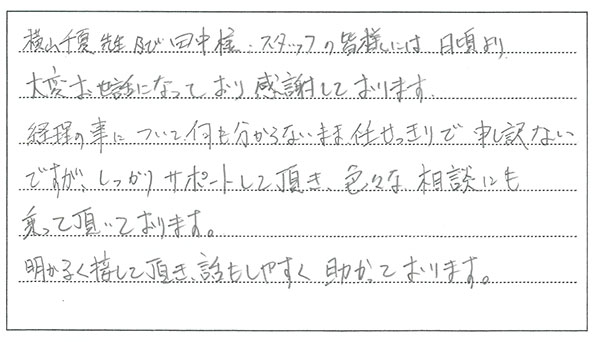 横山千夏先生及び田中様、スタッフの皆様には日頃より
大変お世話になっており感謝しております。
経理の事について何も分からないまま任せっきりで申し訳ない
ですが、しっかりサポートして頂き、色々な相談にも
乗って頂いております。
明かるく接して頂き、話もしやすく助かっております。